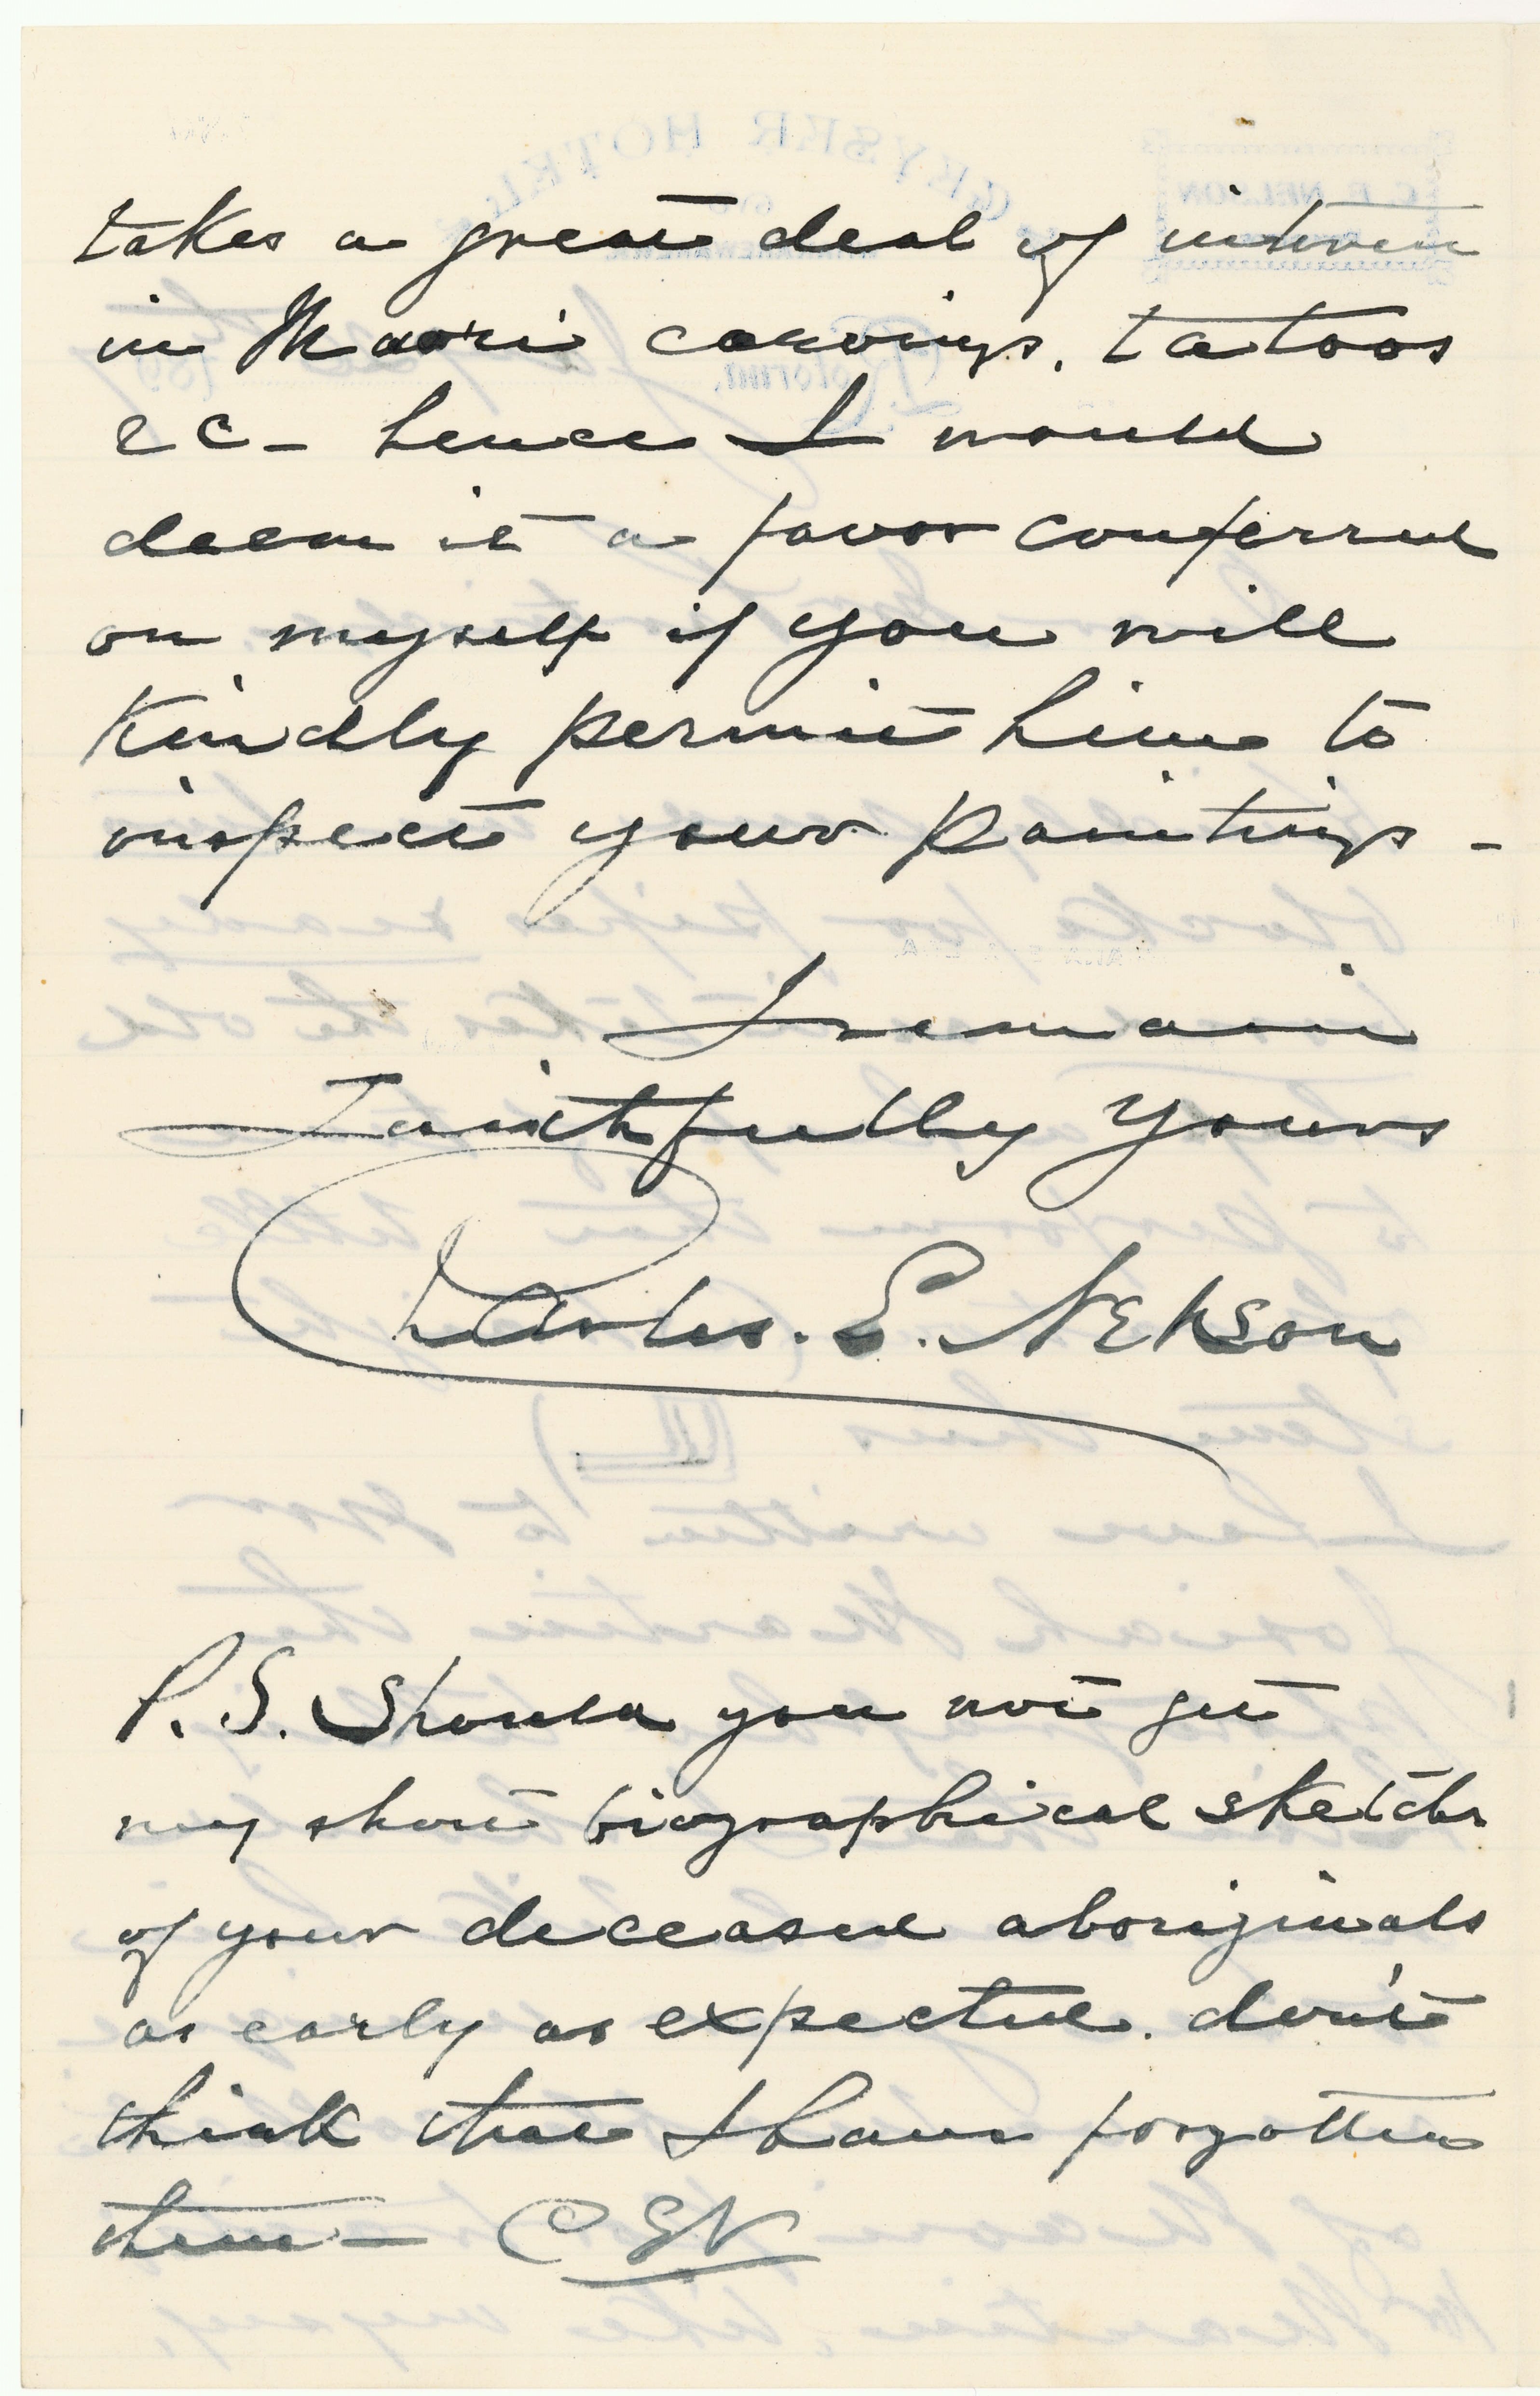 takes a great deal of interest
in Maori carvings, tatoos
&c - hence I would
deem it a favor conferred
on myself if you will
Kindly permit him to
inspect your paintings -
I remain
Faithfully yours
Charles. E. Nelson
P.S. Should you not get
my short biographical sketch
of your deceased aboriginals
as early as expected. don't
think that I have forgotten
them - CEN